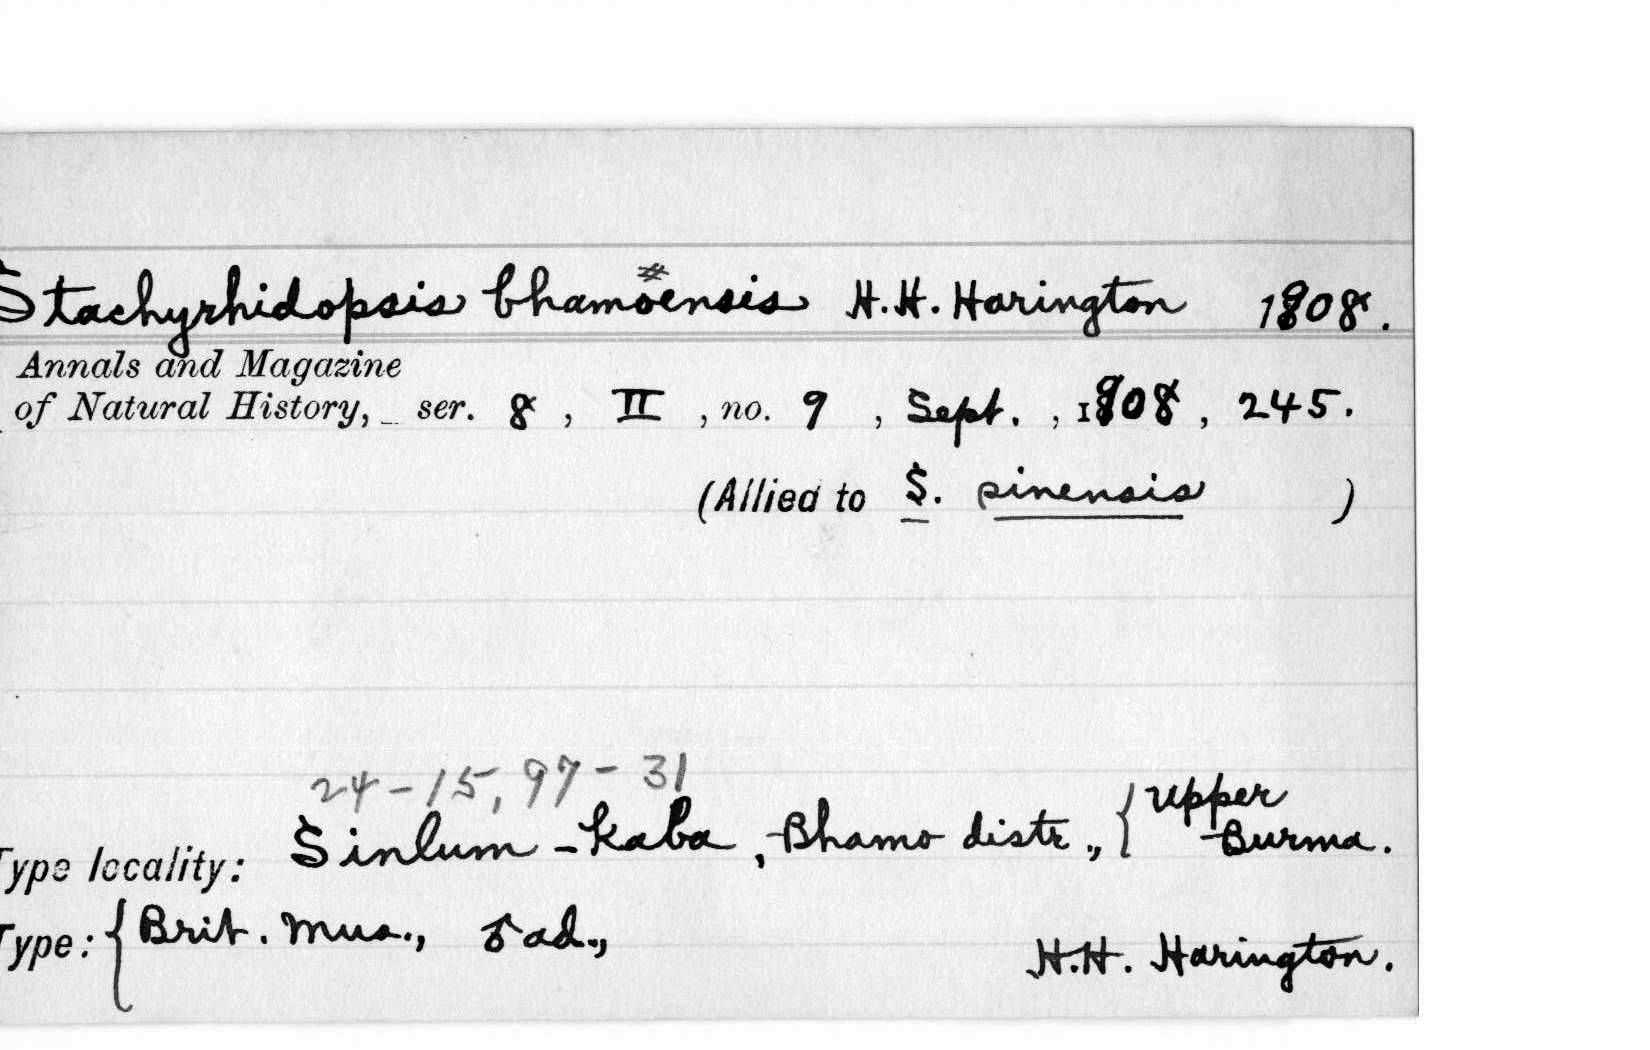 Stachyrhidopsis bhamoensis H.H. Harington 1908.
#
Annals and Magazine
of Natural History, ser. 8, II, no. 9, Sept., 1908, 245.
(Allied to S. pinensis )
24-15, 97-31
Type locality: Sinlum-kaba, Bhamo distr., { Upper
Burma.
Type: { Brit. Mus., ♂ ad.,
H.H. Harington.